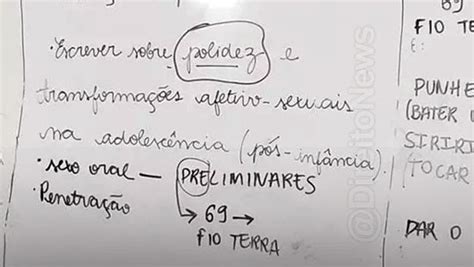 • Escrever sobre polidez e
transformações afetivo-sexuais
na adolescência (pós-infância).
• sexo oral — PRELIMINARES
• Penetração
→ 69 →
FIO TERRA
69
FIO T
E:
PUNHE
(BATER U
SIRIRI
TOCAR
DAR O
@DireitoNews